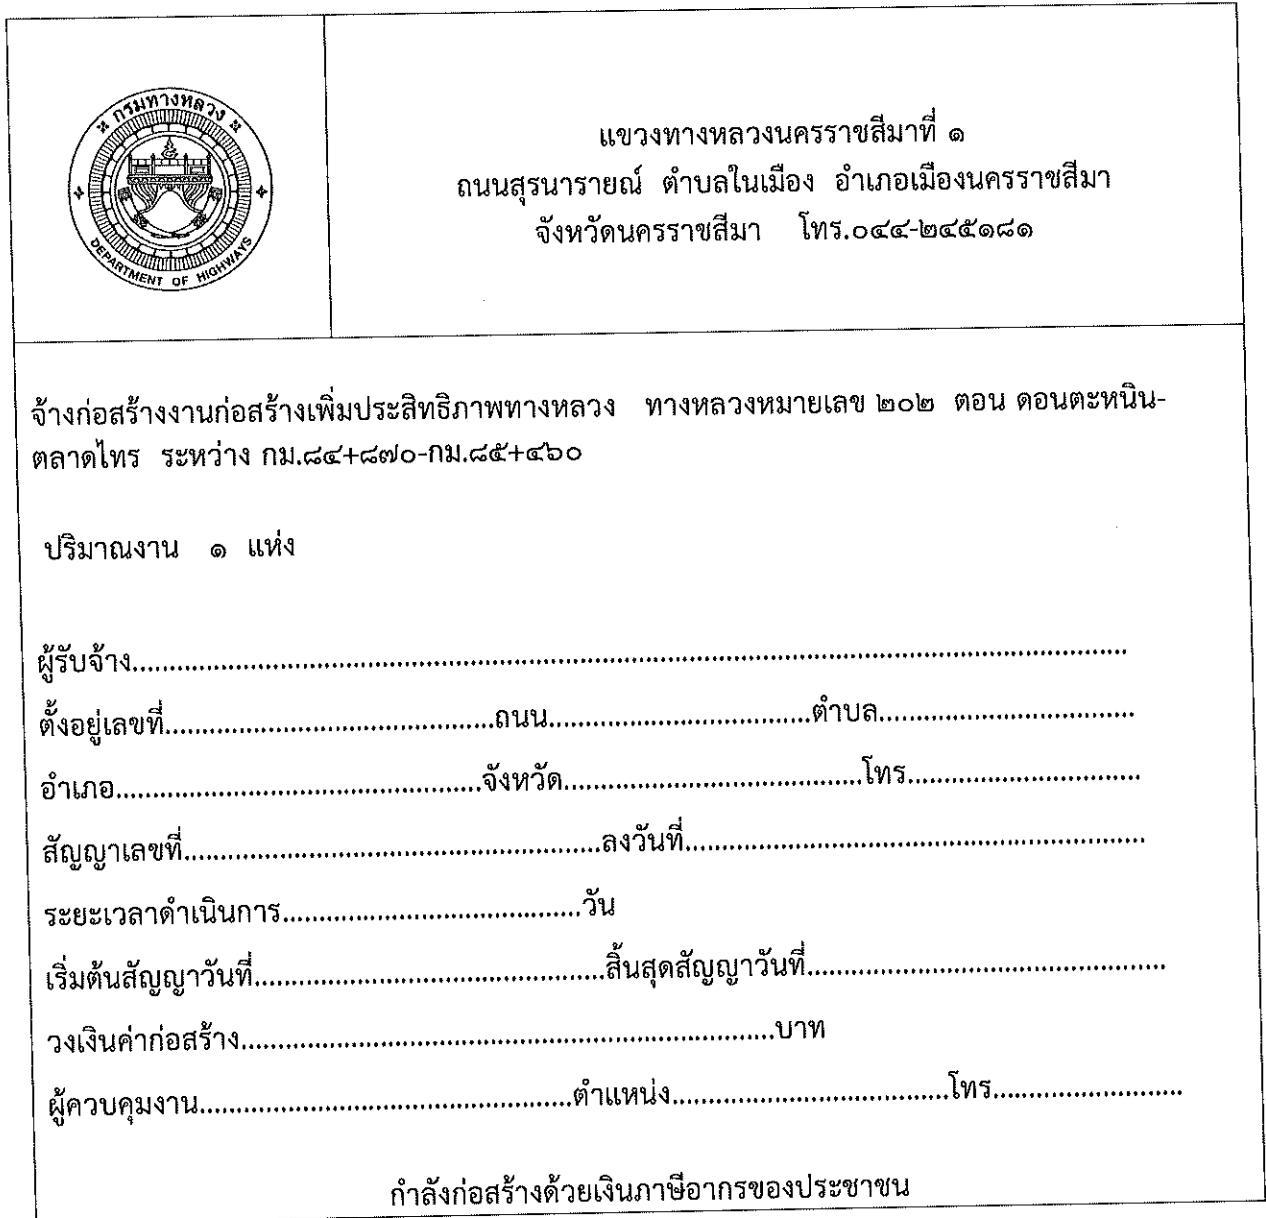 กรมทางหลวง
DEPARTMENT OF HIGHWAYS
แขวงทางหลวงนครราชสีมาที่ ๑
ถนนสุรนารายณ์ ตำบลในเมือง อำเภอเมืองนครราชสีมา
จังหวัดนครราชสีมา โทร.๐๔๔-๒๔๕๑๘๑
จ้างก่อสร้างงานก่อสร้างเพิ่มประสิทธิภาพทางหลวง ทางหลวงหมายเลข ๒๐๒ ตอน ดอนตะหนิน-
ตลาดไทร ระหว่าง กม.๘๔+๘๗๐-กม.๘๕+๔๖๐
ปริมาณงาน ๑ แห่ง
ผู้รับจ้าง........................................
ตั้งอยู่เลขที่....................ถนน....................ตำบล....................
อำเภอ....................จังหวัด....................โทร....................
สัญญาเลขที่....................ลงวันที่....................
ระยะเวลาดำเนินการ....................วัน
เริ่มต้นสัญญาวันที่....................สิ้นสุดสัญญาวันที่....................
วงเงินค่าก่อสร้าง....................บาท
ผู้ควบคุมงาน....................ตำแหน่ง....................โทร....................
กำลังก่อสร้างด้วยเงินภาษีอากรของประชาชน